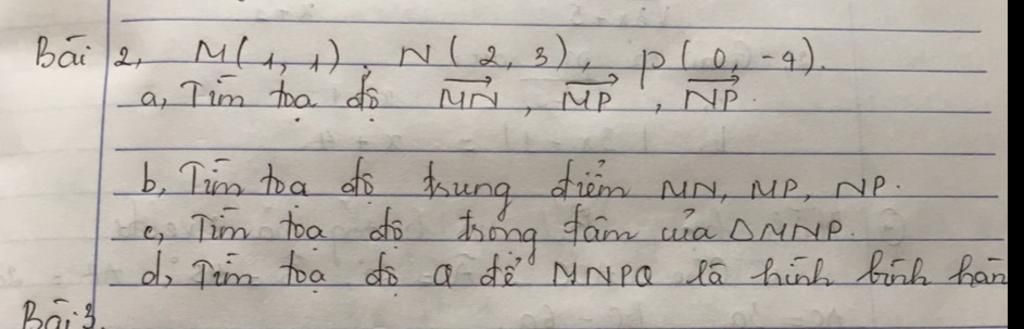 Bài 2, M(1,1), N(2,3), P(0,-4).
a, Tìm tọa độ MN, MP, NP.
b, Tìm tọa độ trung điểm MN, MP, NP.
c, Tìm tọa độ trọng tâm của ΔMNP.
d, Tìm tọa độ Q để MNPQ là hình bình hàn
Bài 3,